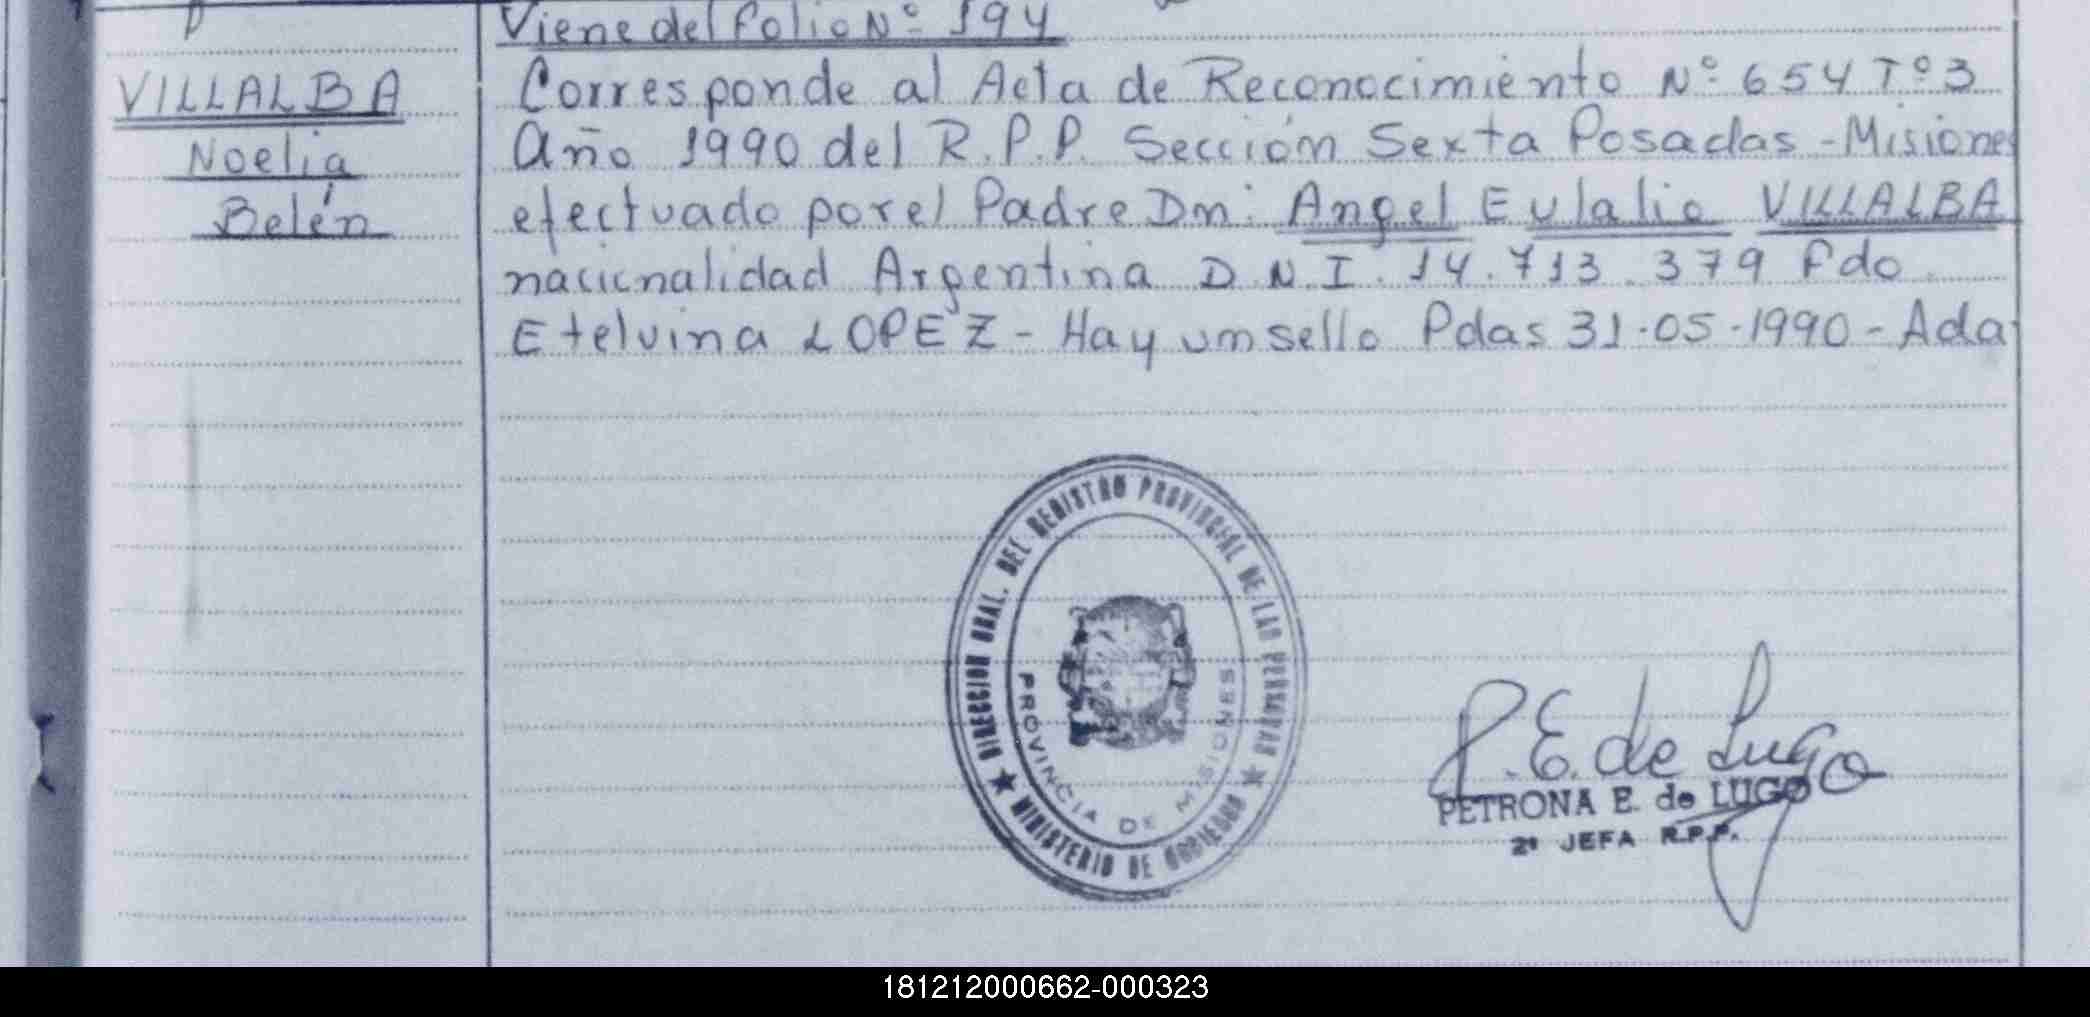 Viene del Folio Nº 194
VILLALBA
Noelia
Belén
Corresponde al Acta de Reconocimiento Nº 654 Tº 3
Año 1990 del R.P.P. Sección Sexta Posadas - Misiones
efectuado por el Padre Dn: Angel Eulalio VILLALBA
nacionalidad Argentina D.N.I. 14.713.379 Fdo
Etelvina LOPEZ - Hay un sello Pdas 31-05-1990 - Ada
DIRECCION GRAL. DEL REGISTRO PROVINCIAL DE LAS PERSONAS
PROVINCIA DE MISIONES
★ MINISTERIO DE GOBIERNO ★
P. E. de Lugo
PETRONA E. de LUGO
2ª JEFA R.P.P.
181212000662-000323